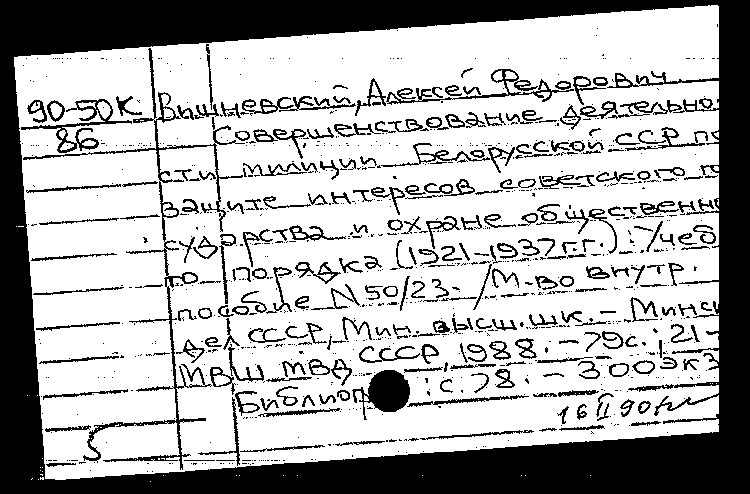 90-50К Вишневский, Алексей Федорович.
86 Совершенствование деятельно-
сти милиции Белорусской ССР по
защите интересов советского г
сударства и охране общественно
го порядка (1921-1937г.г.): Учеб
пособие N50/23. /М-во внутр.
дел СССР, Мин. высш. шк. – Минск
МВШ МВД СССР, 1988. – 79с.; 21-
Библиогр : с. 78. – 300экз
16 II 90
5